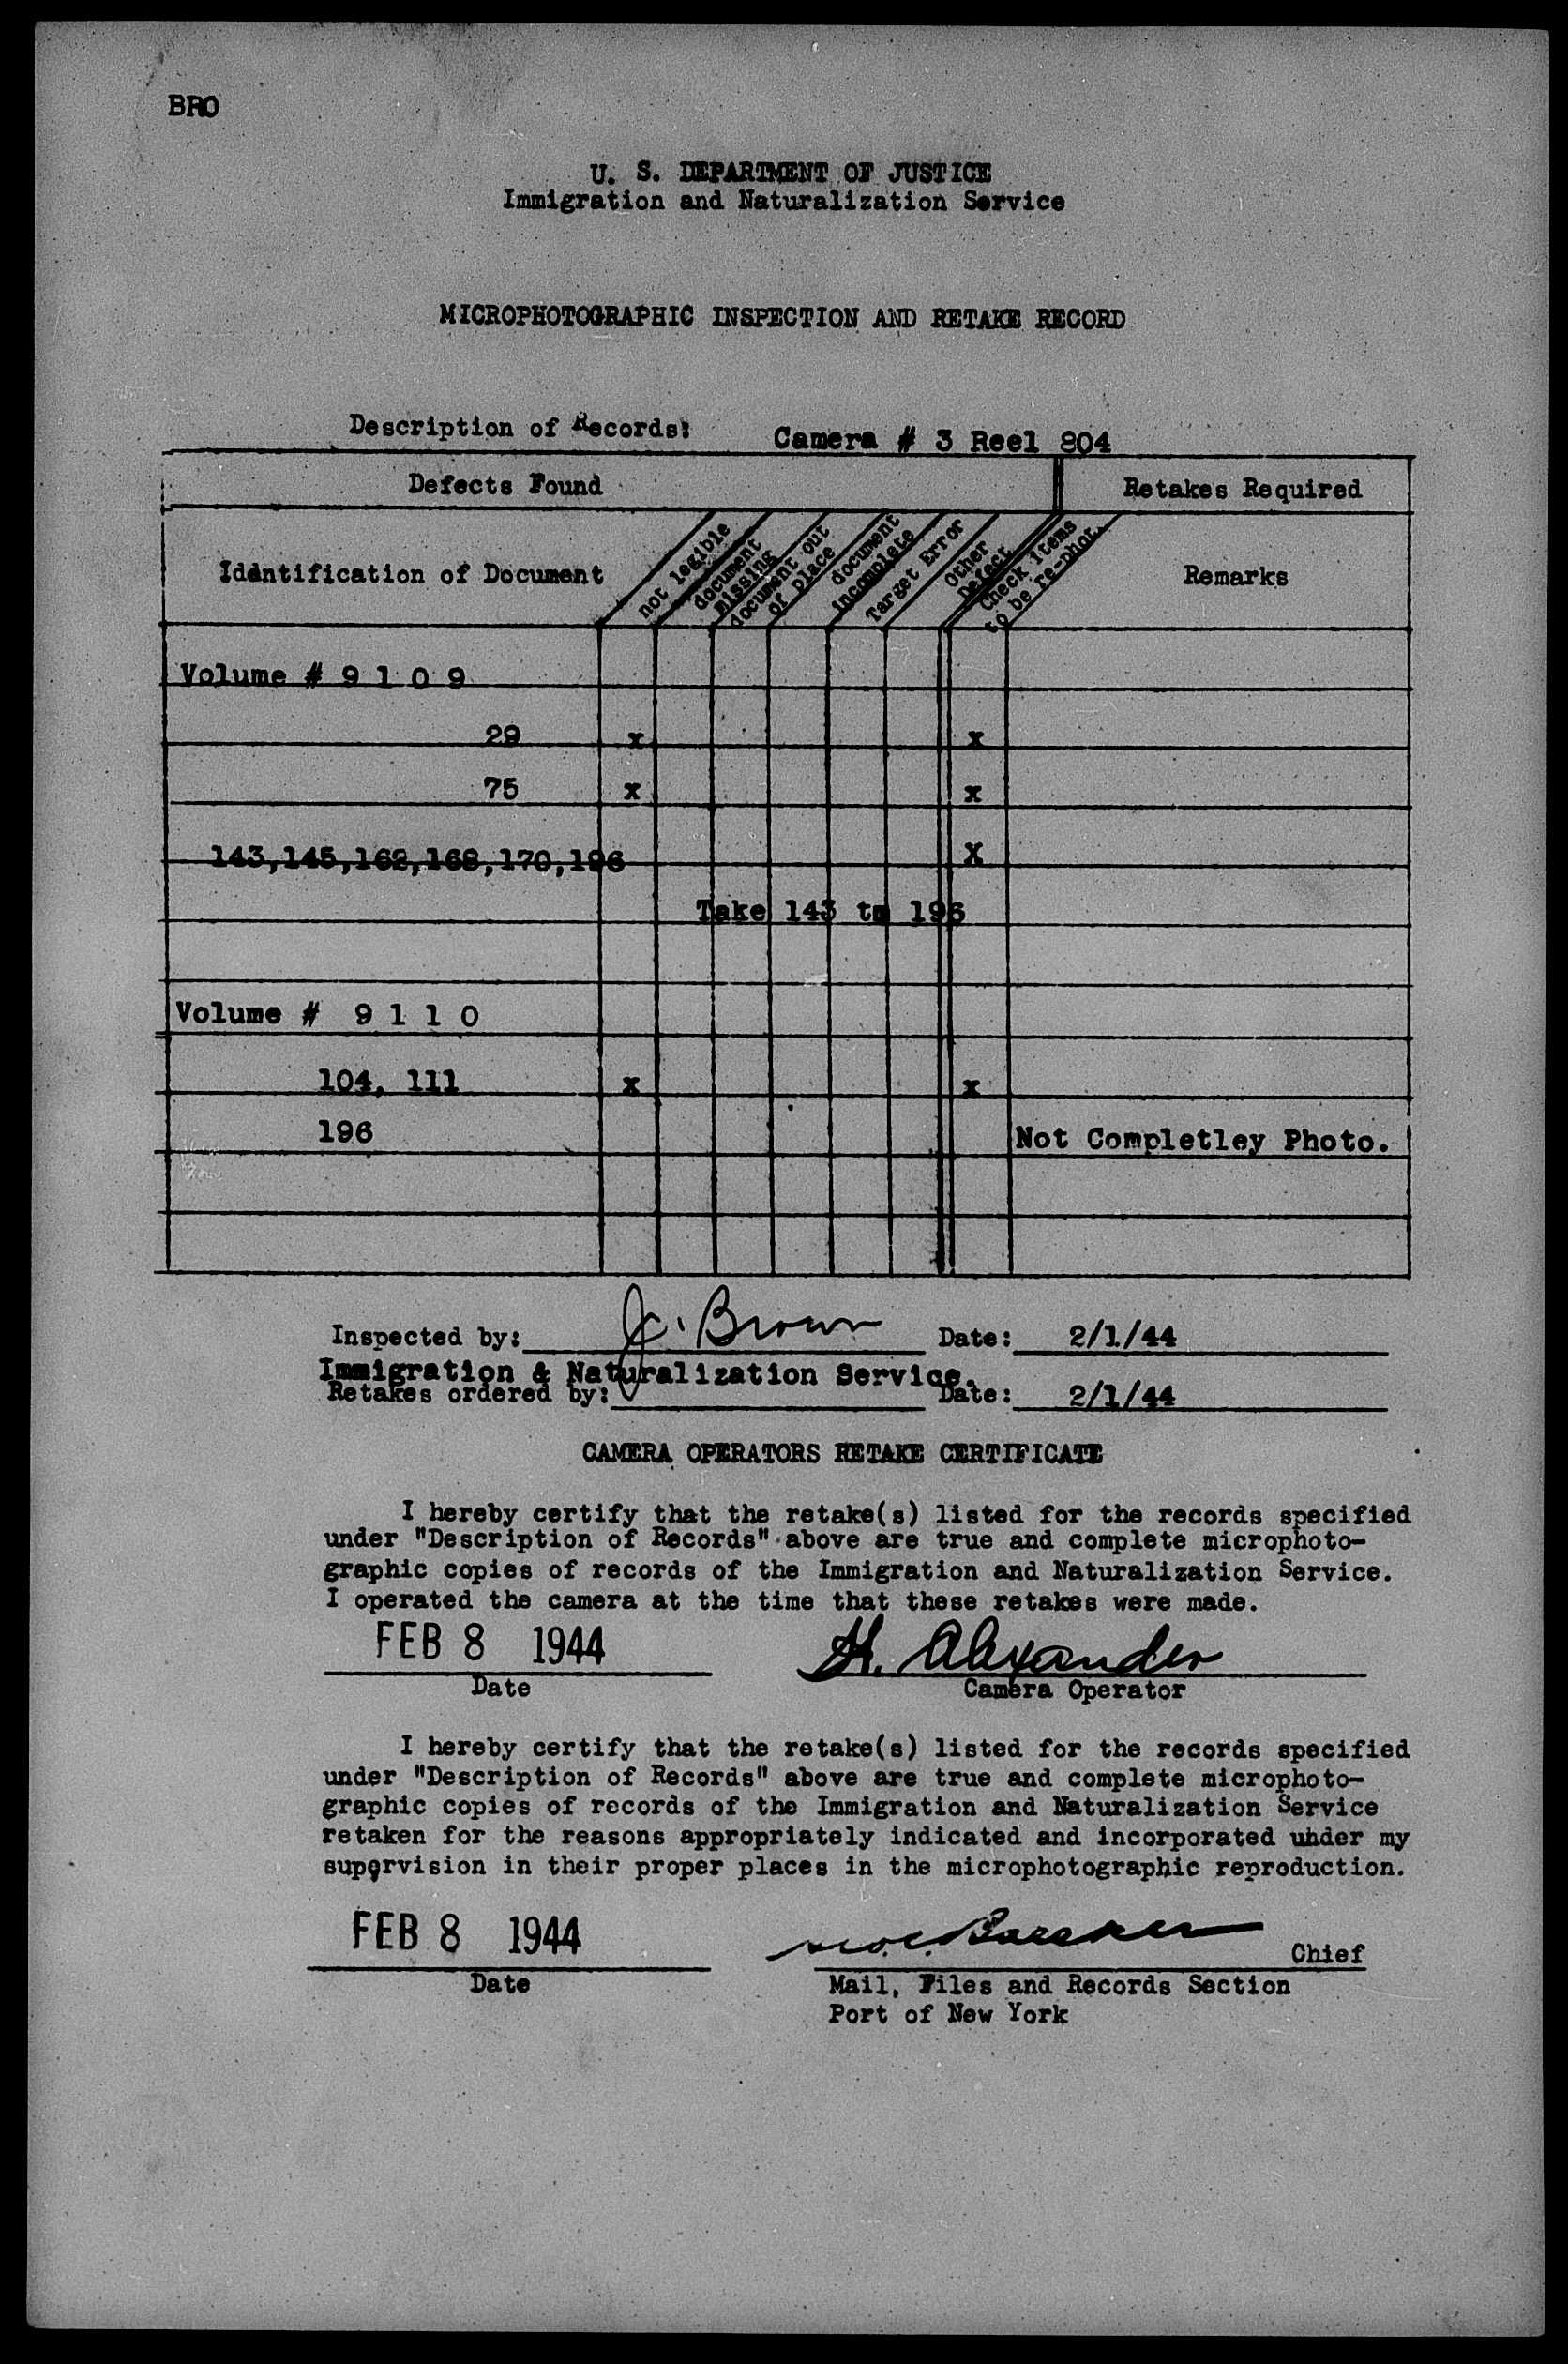 BRO
U. S. DEPARTMENT OF JUSTICE
Immigration and Naturalization Service
MICROPHOTOGRAPHIC INSPECTION AND RETAKE RECORD
Description of Records: Camera # 3 Reel 804
Defects Found Retakes Required
Identification of Document
not legible
document
missing
document out
of place
document
incomplete
Target Error
Other
Defect
Check items
to be re-phot.
Remarks
Volume # 9 1 0 9
29 x x
75 x x
143,145,162,168,170,196 X
Take 143 to 196
Volume # 9 1 1 0
104, 111 x x
196 Not Completley Photo.
Inspected by: J. Brown Date: 2/1/44
Immigration & Naturalization Service.
Retakes ordered by: Date: 2/1/44
CAMERA OPERATORS RETAKE CERTIFICATE
I hereby certify that the retake(s) listed for the records specified
under "Description of Records" above are true and complete microphoto-
graphic copies of records of the Immigration and Naturalization Service.
I operated the camera at the time that these retakes were made.
FEB 8 1944 H. Alexander
Date Camera Operator
I hereby certify that the retake(s) listed for the records specified
under "Description of Records" above are true and complete microphoto-
graphic copies of records of the Immigration and Naturalization Service
retaken for the reasons appropriately indicated and incorporated uhder my
supervision in their proper places in the microphotographic reproduction.
FEB 8 1944 Chief
Date Mail, Files and Records Section
Port of New York